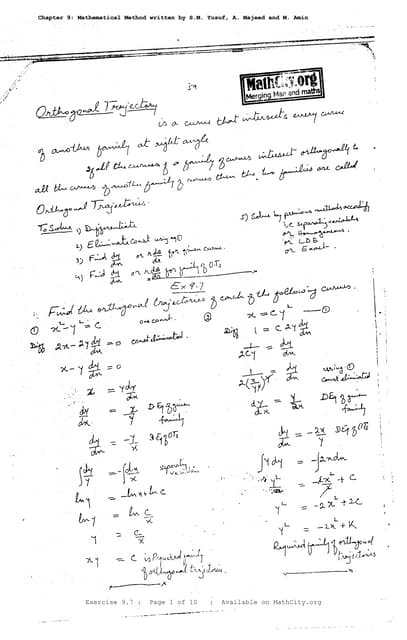 Chapter 9: Mathematical Method written by S.M. Yusuf, A. Majeed and M. Amin
MathCity.org
Merging Man and maths
Orthogonal Trajectory
is a curve that intersects every curve
of another family at right angle
If all the curves of a family of curves intersect orthogonally to
all the curves of another family of curves then the two families are called
Orthogonal Trajectories.
To Solve 1) Differentiate
2) Eliminate const using eq ①
3) Find dy/dx or r dθ/dr for given curve.
4) Find dy/dx or r dθ/dr for family of OTs
5) Solve by previous methods according
i.e. separating variables
or Homogeneous.
or LDE
or Exact.
Ex 9.7
Find the orthogonal trajectories of each of the following curves.
① x² - y² = c one const.
Diff 2x - 2y dy/dx = 0 const eliminated.
x - y dy/dx = 0
x = y dy/dx
dy/dx = x/y DEq of given family
dy/dx = -y/x DEq of OTs
∫ dy/y = -∫ dx/x separating variables
ln y = -ln x + ln c
ln y = ln c/x
y = c/x
xy = c is Required family
of orthogonal trajectories.
② x = cy² — ①
Diff 1 = c 2y dy/dx
1/2cy = dy/dx
1/2(x/y²)y = dy/dx using ① const eliminated
dy/dx = y/2x DEq of given family
dy/dx = -2x/y DEq of OTs
∫ y dy = -∫ 2x dx
y²/2 = -2x²/2 + C
y² = -2x² + 2C
y² = -2x² + K
Required family of orthogonal
trajectories
Exercise 9.7 : Page 1 of 10 : Available on MathCity.org